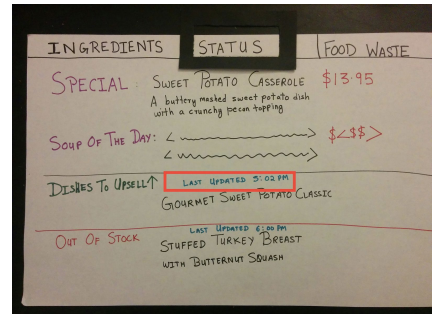 INGREDIENTS STATUS FOOD WASTE
SPECIAL: SWEET POTATO CASSEROLE $13.95
A buttery mashed sweet potato dish
with a crunchy pecan topping
SOUP OF THE DAY: < > $<$$>
< >
DISHES TO UPSELL↑ LAST UPDATED 5:02 PM
GOURMET SWEET POTATO CLASSIC
LAST UPDATED 6:00 PM
OUT OF STOCK STUFFED TURKEY BREAST
WITH BUTTERNUT SQUASH